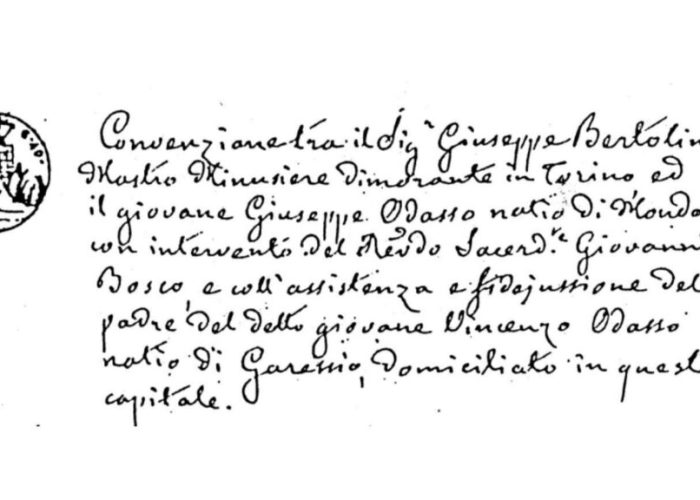 Convenzione tra il Sig.r Giuseppe Bertolin
Mastro Minusiere dimorante in Torino ed
il giovane Giuseppe Odasso natio di Mondo
con intervento del Revdo Sacerd.e Giovanni
Bosco, e coll'assistenza e fidejussione del
padre del detto giovane Vincenzo Odasso
natio di Garessio, domiciliato in quest
capitale.